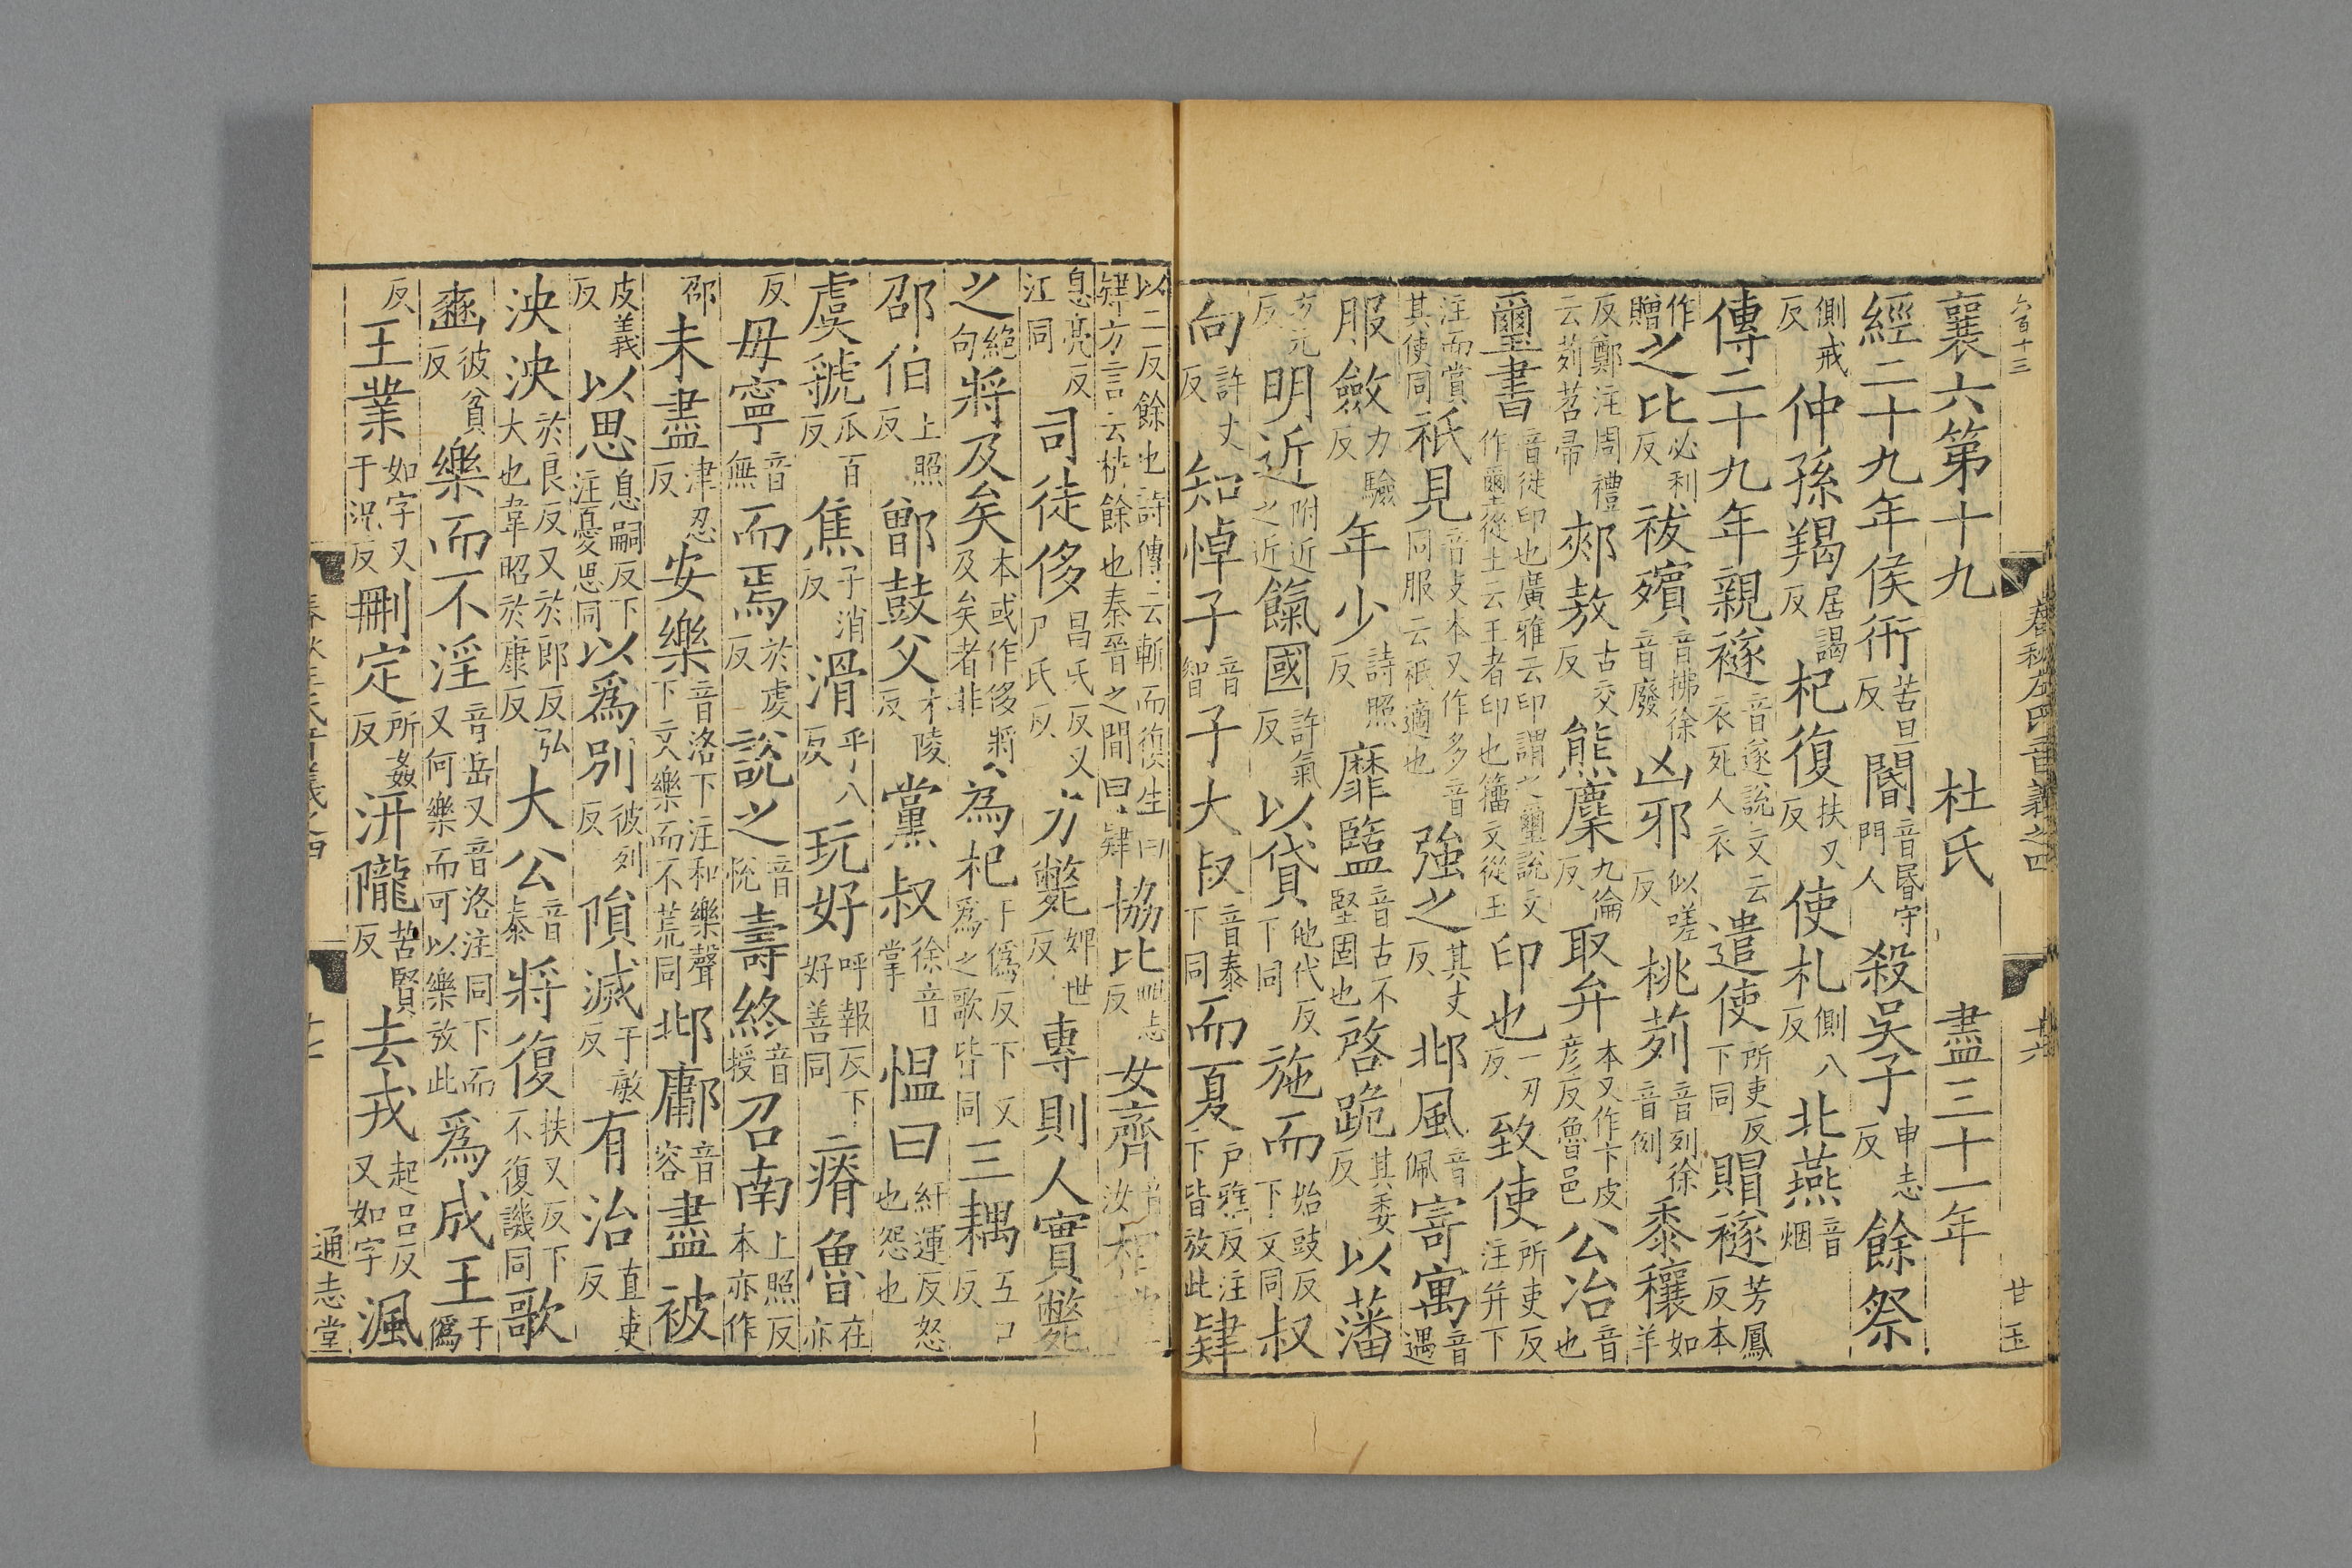 六百十三
春秋左氏音義之四
廿六
廿玉
襄六第十九 杜氏 盡三十一年
經二十九年侯衎苦旦反閽音昏守門人殺吳子申志反餘祭
側戒反仲孫羯居謁反杞復扶又反使札側八反北燕音烟
傳二十九年親襚音遂說文云衣死人衣遣使所吏反下同賵襚芳鳳反本
作贈之比必利反祓殯音拂徐音廢凶邪似嗟反桃茢音列徐音例黍穰如羊
反鄭注周禮云茢苕帚郟敖古交反熊麇九倫反取弁本又作卞皮彥反魯邑公冶音也
璽書音徙印也廣雅云印謂之璽說文作壐從土云王者印也籀文從玉印也一刃反致使所吏反注并下
注而賞其使同祇見音支本又作多音同服云祇適也強之其丈反邶風音佩寄寓音遇
服斂力驗反年少詩照反靡盬音古不堅固也啓跪其委反以藩
方元反明近附近之近餼國許氣反以貸他代反下同施而始豉反下文同叔
向許丈反知悼子音智子大叔音泰下同而夏戶雅反注下皆放此肄
以二反餘也詩傳云斬而復生曰肄方言云枿餘也秦晉之間曰肄協比毗志反女齊音汝相禮
息亮反江同司徒侈昌氏反又尸氏反力斃婢世反專則人實斃
之絕句將及矣本或作侈將及矣者非為杞于僞反下又爲之歌皆同三耦五口反
邵伯上照反鄫鼓父才陵反黨叔徐音掌愠曰紆運反怒也怨也
虞虢瓜百反焦子消反滑乎八反玩好呼報反下好善同瘠魯在亦
反毋寧音無而焉於虔反說之音悅壽終音授召南上照反本亦作
邵未盡津忍反安樂音洛下注和樂聲下文樂而不荒同邶鄘音容盡被
皮義反以思息嗣反下注憂思同以爲別彼列反隕滅于敏反有治直吏反
泱泱於良反又於郎反弘大也韋昭於康反大公音泰將復扶又反下不復譏同歌
豳彼貧反樂而不淫音岳又音洛注同下而又何樂而可以樂放此爲成王于僞
反王業如字又于況反刪定所姦反汧隴苦賢反去戎起呂反又如字渢
通志堂